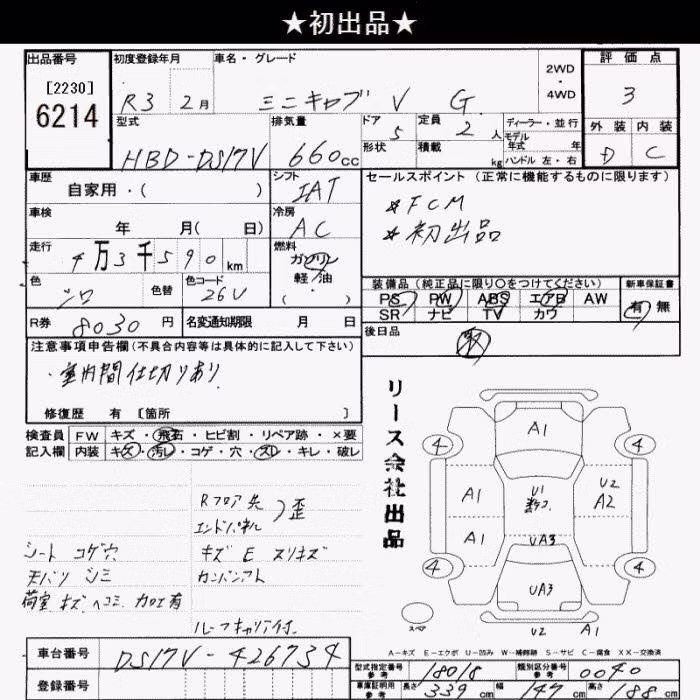 ★初出品★
出品番号 初度登録年月 車名・グレード 2WD・4WD 評価点
[2230]
6214
R3 2月 ミニキャブ V G 3
型式 排気量 ドア 定員 ディーラー・並行
HBD-DS17V 660cc 5 2人 モデル年式 年
形状 積載 kg ハンドル 左・右
外装 内装
D C
車歴 シフト セールスポイント (正常に機能するものに限ります)
自家用・( ) IAT ☆FCM
車検 冷房
年 月( 日) AC ☆初出品
走行 燃料
4万3千590km ガソリン
軽油
( ・ )
色 色替 色コード
シロ 26U
装備品 (純正品に限り○をつけてください) 新車保証書
PS PW ABS エアB AW 有・無
SR ナビ TV カワ
R券 8030円 名変通知期限 月 日
後日品
取
注意事項申告欄(不具合内容等は具体的に記入して下さい)
・室内間仕切りあり
修復歴 有 [箇所 ]
検査員 FW キズ・飛石・ヒビ割・リペア跡・×要
記入欄 内装 キズ・汚レ・コゲ・穴・スレ・キレ・破レ
Rフロア先
エンドパネル )歪
シート コゲ穴 キズ E スリキズ
天バリ シミ カンバンアト
荷室 キズ ヘコミ カロエ有
ルーフキャリア付.
リース会社出品
A1
4 4
A1 U1 U2
A2
A1 UA3
4 4
UA3
スペア
U2 A1
A-キズ E-エクボ U-凹み W-補修跡 S-サビ C-腐食 XX-交換済
車台番号 DS17V-426734
登録番号
型式指定番号 参考 18018 類別区分番号 参考 0040
車庫証明用 参考 長さ 339cm 幅 147cm 高さ 188cm